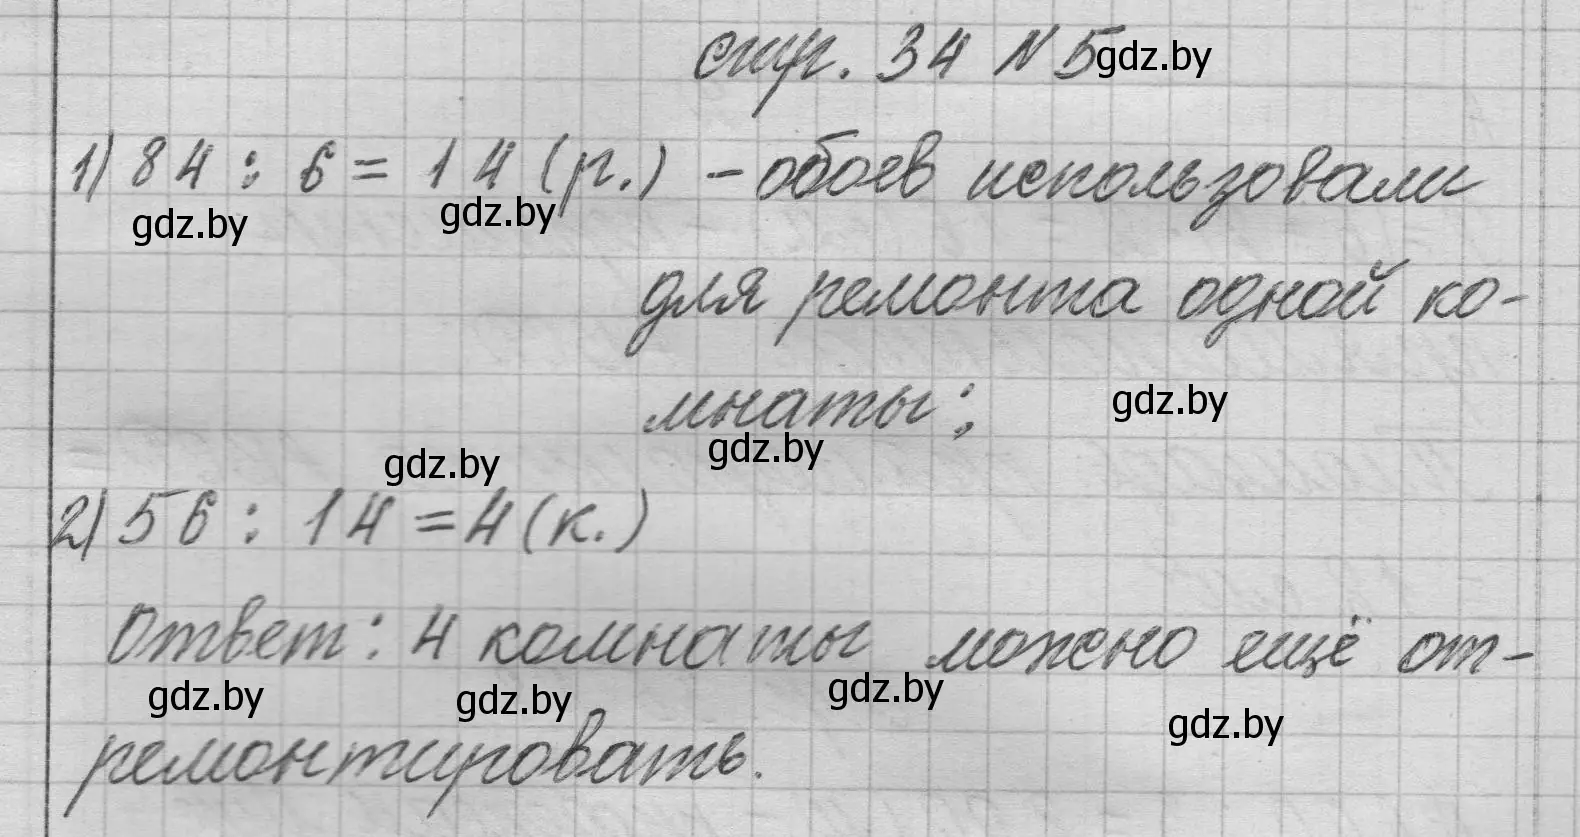 стр. 34 N 5 gdz.by
1) 84 : 6 = 14 (р.) - обоев использовали
gdz.by gdz.by
для ремонта одной ко-
мнаты; gdz.by
gdz.by gdz.by
2) 56 : 14 = 4 (к.)
Ответ: 4 комнаты можно ещё от-
gdz.by gdz.by gdz.by gdz.by
ремонтировать.